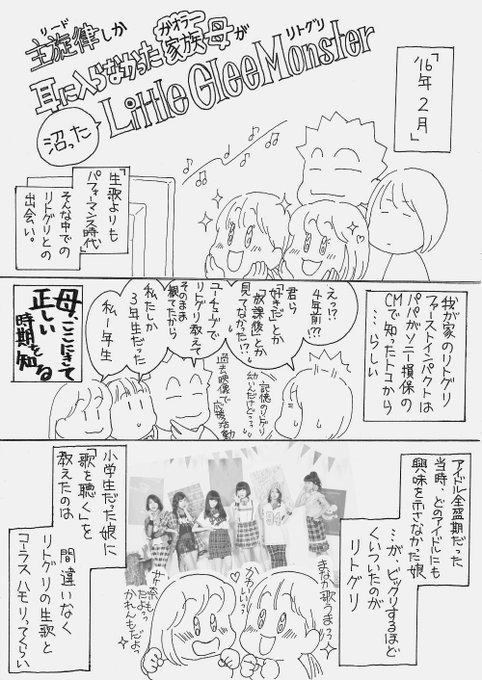 リード
主旋律しか
耳に入らなかった
がオラー
家族母が
リトグリ
Little Glee Monster
沼った
'16年2月
「生歌よりも
パフォーマンス時代」
そんな中での
リトグリとの
出会い。
我が家のリトグリ
ファーストインパクトは
パパがソニー損保の
CMで知ったトコから
…らしい
えっ!?
4年前!??
君ら
「好きだ」とか
「放課後」とか
見てなかった!?
記憶のリトグリ
幼いんだけど…
ユーチューブで
リトグリ教えて
そのまま
観てたから
過去映像で
応援活動
私たしか
3年生だった
私1年生
母、ここにきて
正しい
時期を知る
アイドル全盛期だった
当時、どのアイドルにも
興味を示さなかった娘
…が、ビックリするほど
くいついたのが
リトグリ
まなか歌うまっ
かわいいっ
かれんもだよ。
小学生だった娘に
「歌を聴く」を
教えたのは
間違いなく
リトグリの生歌と
コーラス ハモリってくらい